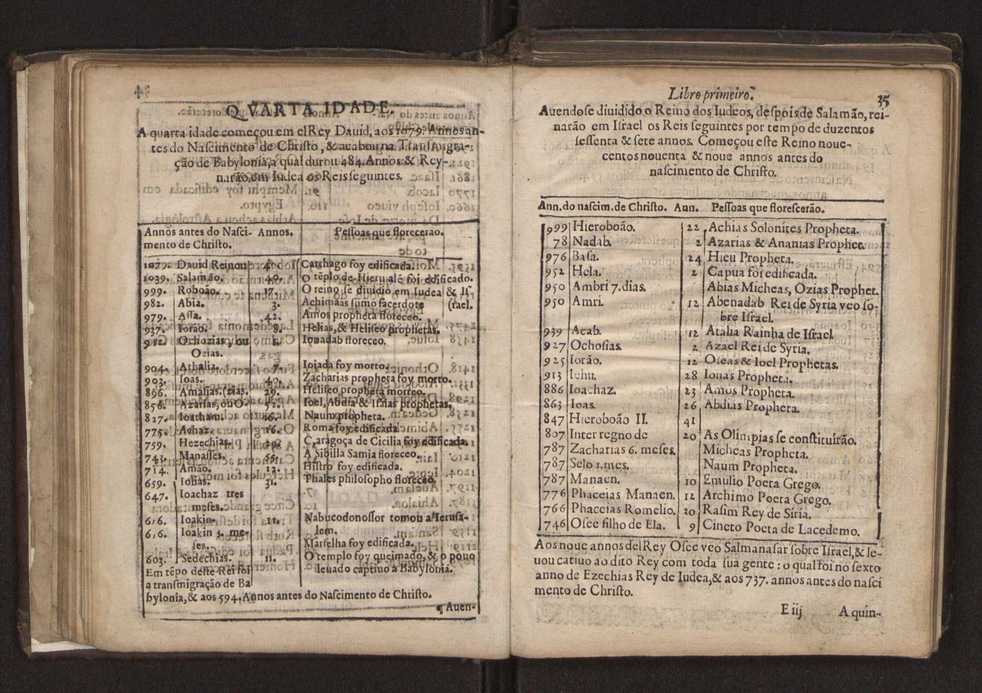 34
QVARTA IDADE.
A quarta idade começou em elRey Dauid, aos 1079. Annos an-
tes do Nascimento de Christo, & acabou na Transmigra-
ção de Babylonia, a qual durou 484. Annos & Rey-
narão em Iudea os Reis seguintes.
Annos antes do Nasci- Annos. Pessoas que florecerão.
mento de Christo.
1079. Dauid Reinou 40. Carthago foy edificada.
1039. Salamão. 40. O tẽplo de Hierusalẽ foi edificado.
999. Roboão. 17. O reino se diuidio em Iudea & Is-
982. Abia. 3. Achimaas sumo sacerdote (rael.
979. Assa. 42. Amos propheta floreceo.
937. Iorão. 8. Helias, & Heliseo prophetas.
Ochozias, ou Iouadab floreceo.
Ozias.
904. Athalia. 7. Ioiada foy morto.
903. Ioas. Zacharias propheta foy morto.
896. Amasias. 29. Heliseo propheta morreo.
856. Azarias, ou O- Ioel, Abdia & Isaias prophetas.
817. Ioatham. 16. Naum propheta.
775. Achaz. 16. Roma foy edificada
759. Hezechias. Çaragoça de Cicilia foy edificada.
743. Manasses. 55. A Sibilla Samia floreceo.
714. Amão. 12. Histro foy edificada.
659. Iosias. 31. Phales philosopho floreceo.
647. Ioachaz tres
meses.
616. Ioakin. 11. Nabucodonossor tomou a Ierusa-
616. Ioakin 3. me- lem.
ses. Marselha foy edificada.
603. Sedechias. 11. O templo foy queimado, & o pouo
Em tẽpo deste Rei foi leuado captiuo a Babylonia.
a transmigração de Ba
bylonia, & aos 594. Annos antes do Nascimento de Christo.
¶ Auen-
Libro primeiro. 35
Auendose diuidido o Reino dos Iudeos, despois de Salamão, rei-
narão em Israel os Reis seguintes por tempo de duzentos
sessenta & sete annos. Começou este Reino noue-
centos nouenta & noue annos antes do
nascimento de Christo.
Ann. do nascim. de Christo. Ann. Pessoas que florescerão.
999 Hieroboão. 22 Achias Solonites Propheta.
78 Nadab. 2 Azarias & Ananias Prophet.
976 Basa. 24 Hieu Propheta.
952 Hela. 2 Capua foi edificada.
950 Ambri 7. dias. Abias Micheas, Ozias Prophet.
950 Amri. 12 Abenadab Rei de Syria veo so-
bre Israel.
939 Acab. 12 Atalia Rainha de Israel
927 Ochosias. 2 Azael Rei de Syria.
925 Iorão. 12 Oseas & Ioel Prophetas.
913 Iehu. 28 Ionas Propheta.
886 Ioachaz. 23 Amos Propheta.
863 Ioas. 26 Abdias Propheta.
847 Hieroboão II. 41
807 Inter regno de 20 As Olimpias se constituirão.
787 Zacharias 6. meses. Micheas Propheta.
787 Selo 1. mes. Naum Propheta.
787 Manaen. 10 Emulio Poeta Grego.
776 Phaceias Manaen. 12 Archimo Poeta Grego.
766 Phaceias Romelio. 20 Rasim Rey de Siria.
746 Osee filho de Ela. 9 Cineto Poeta de Lacedemo.
Aos noue annos del Rey Osee veo Salmanasar sobre Israel, & le-
uou catiuo ao dito Rey com toda sua gente: o qual foi no sexto
anno de Ezechias Rey de Iudea, & aos 737. annos antes do nasci
mento de Christo.
E iij A quin-